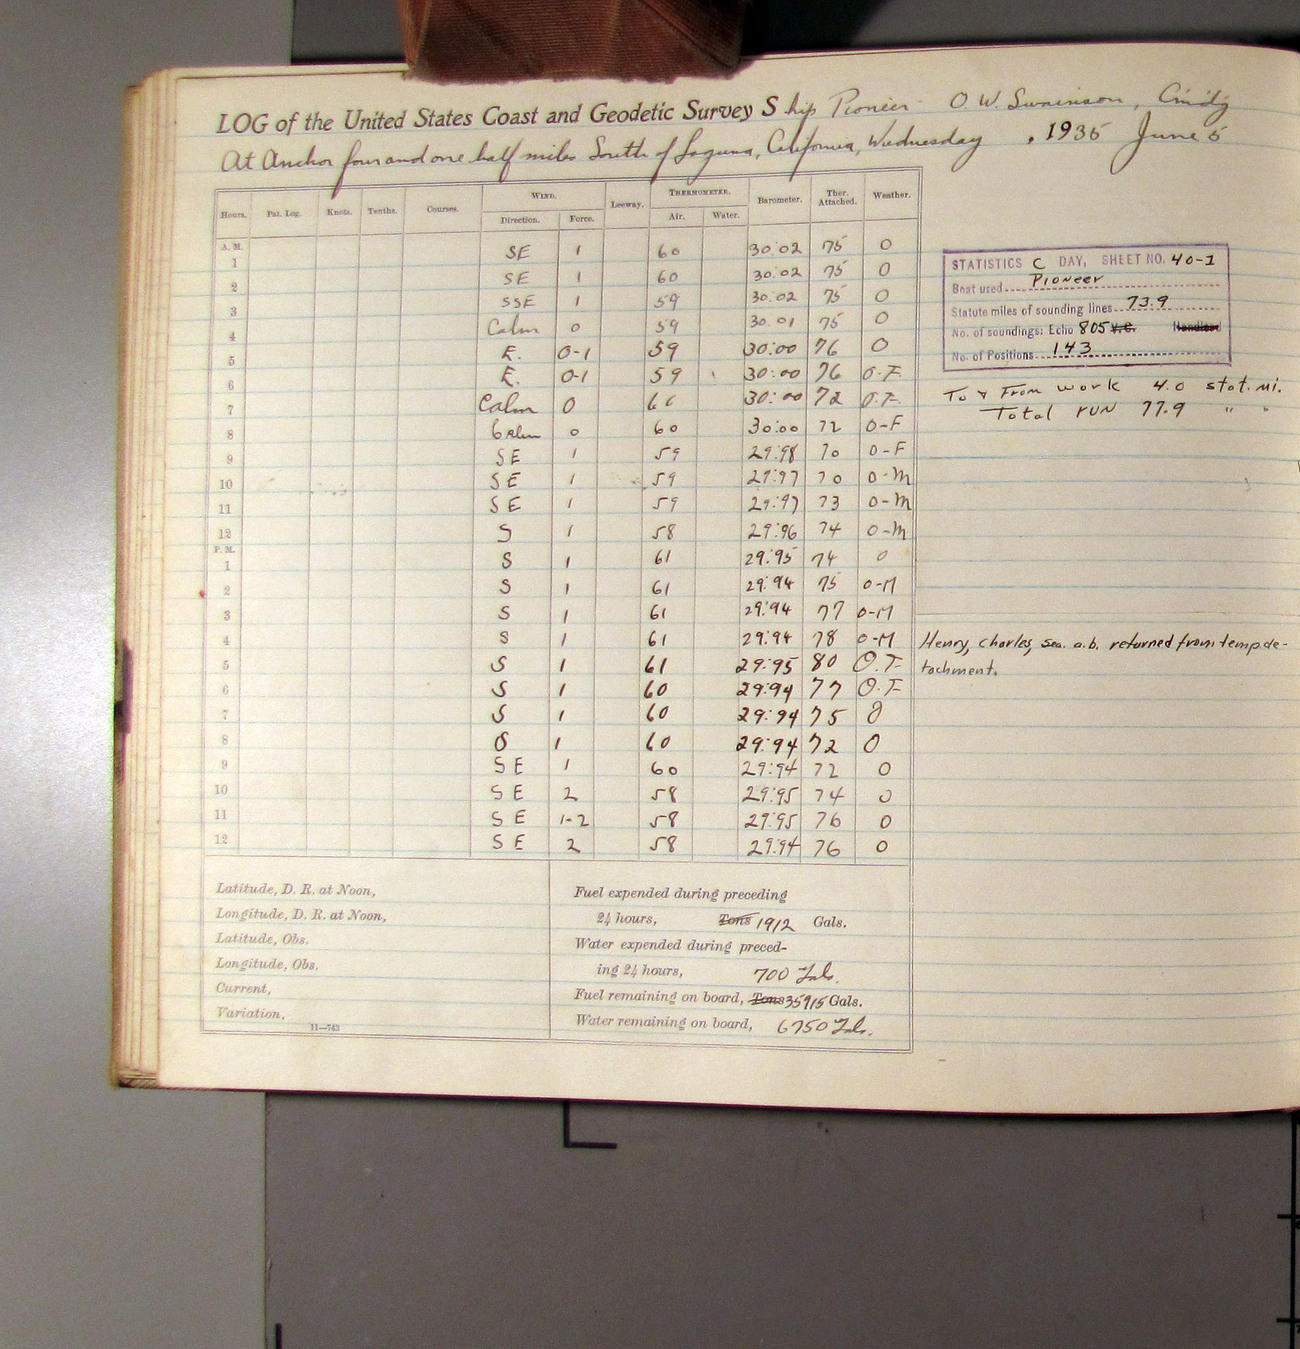 LOG of the United States Coast and Geodetic Survey Ship Pioneer O. W. Swainson, Cmdg
At Anchor four and one half miles South of Laguna, California, Wednesday , 1935 June 5
Hours. Pat. Log. Knots. Tenths. Courses. WIND. Direction. Force. Leeway. THERMOMETER. Air. Water. Barometer. Ther. Attached. Weather.
A. M.
1 SE 1 60 30:02 75 O
2 SE 1 60 30:02 75 O
3 SSE 1 59 30:02 75 O
4 Calm 0 59 30:01 75 O
5 E. 0-1 59 30:00 76 O
6 E. 0-1 59 30:00 76 O.F.
7 Calm 0 30:00 72 O.F.
8 Calm 0 60 30:00 72 O-F
9 SE 1 59 29:98 70 O-F
10 SE 1 59 29:97 70 O-M
11 SE 1 59 29:97 73 O-M
12 S 1 58 29:96 74 O-M
P. M.
1 S 1 61 29:95 74 O
2 S 1 61 29:94 75 O-M
3 S 1 61 29:94 77 O-M
4 S 1 61 29:94 78 O-M
5 S 1 61 29:95 80 O.F.
6 S 1 60 29:94 77 O.F.
7 S 1 60 29:94 75 O
8 S 1 60 29:94 72 O
9 SE 1 60 29:94 72 O
10 SE 2 58 29:95 74 O
11 SE 1-2 58 29:95 76 O
12 SE 2 58 29:94 76 O
STATISTICS C DAY, SHEET NO. 40-1
Boat used Pioneer
Statute miles of sounding lines 73.9
No. of soundings: Echo 805 V.C. Handlead
No. of Positions 143
To & From work 4.0 stat. mi.
Total run 77.9 " "
Henry, Charles, sea. a.b. returned from temp de-
tachment.
Latitude, D. R. at Noon,
Longitude, D. R. at Noon,
Latitude, Obs.
Longitude, Obs.
Current,
Variation,
11—743
Fuel expended during preceding
24 hours, Tons 1912 Gals.
Water expended during preced-
ing 24 hours, 700 Gals.
Fuel remaining on board, Tons 35915 Gals.
Water remaining on board, 6750 Gals.